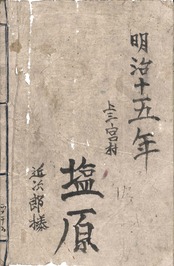 明治十五年
上三宮村
塩原
近次郎様